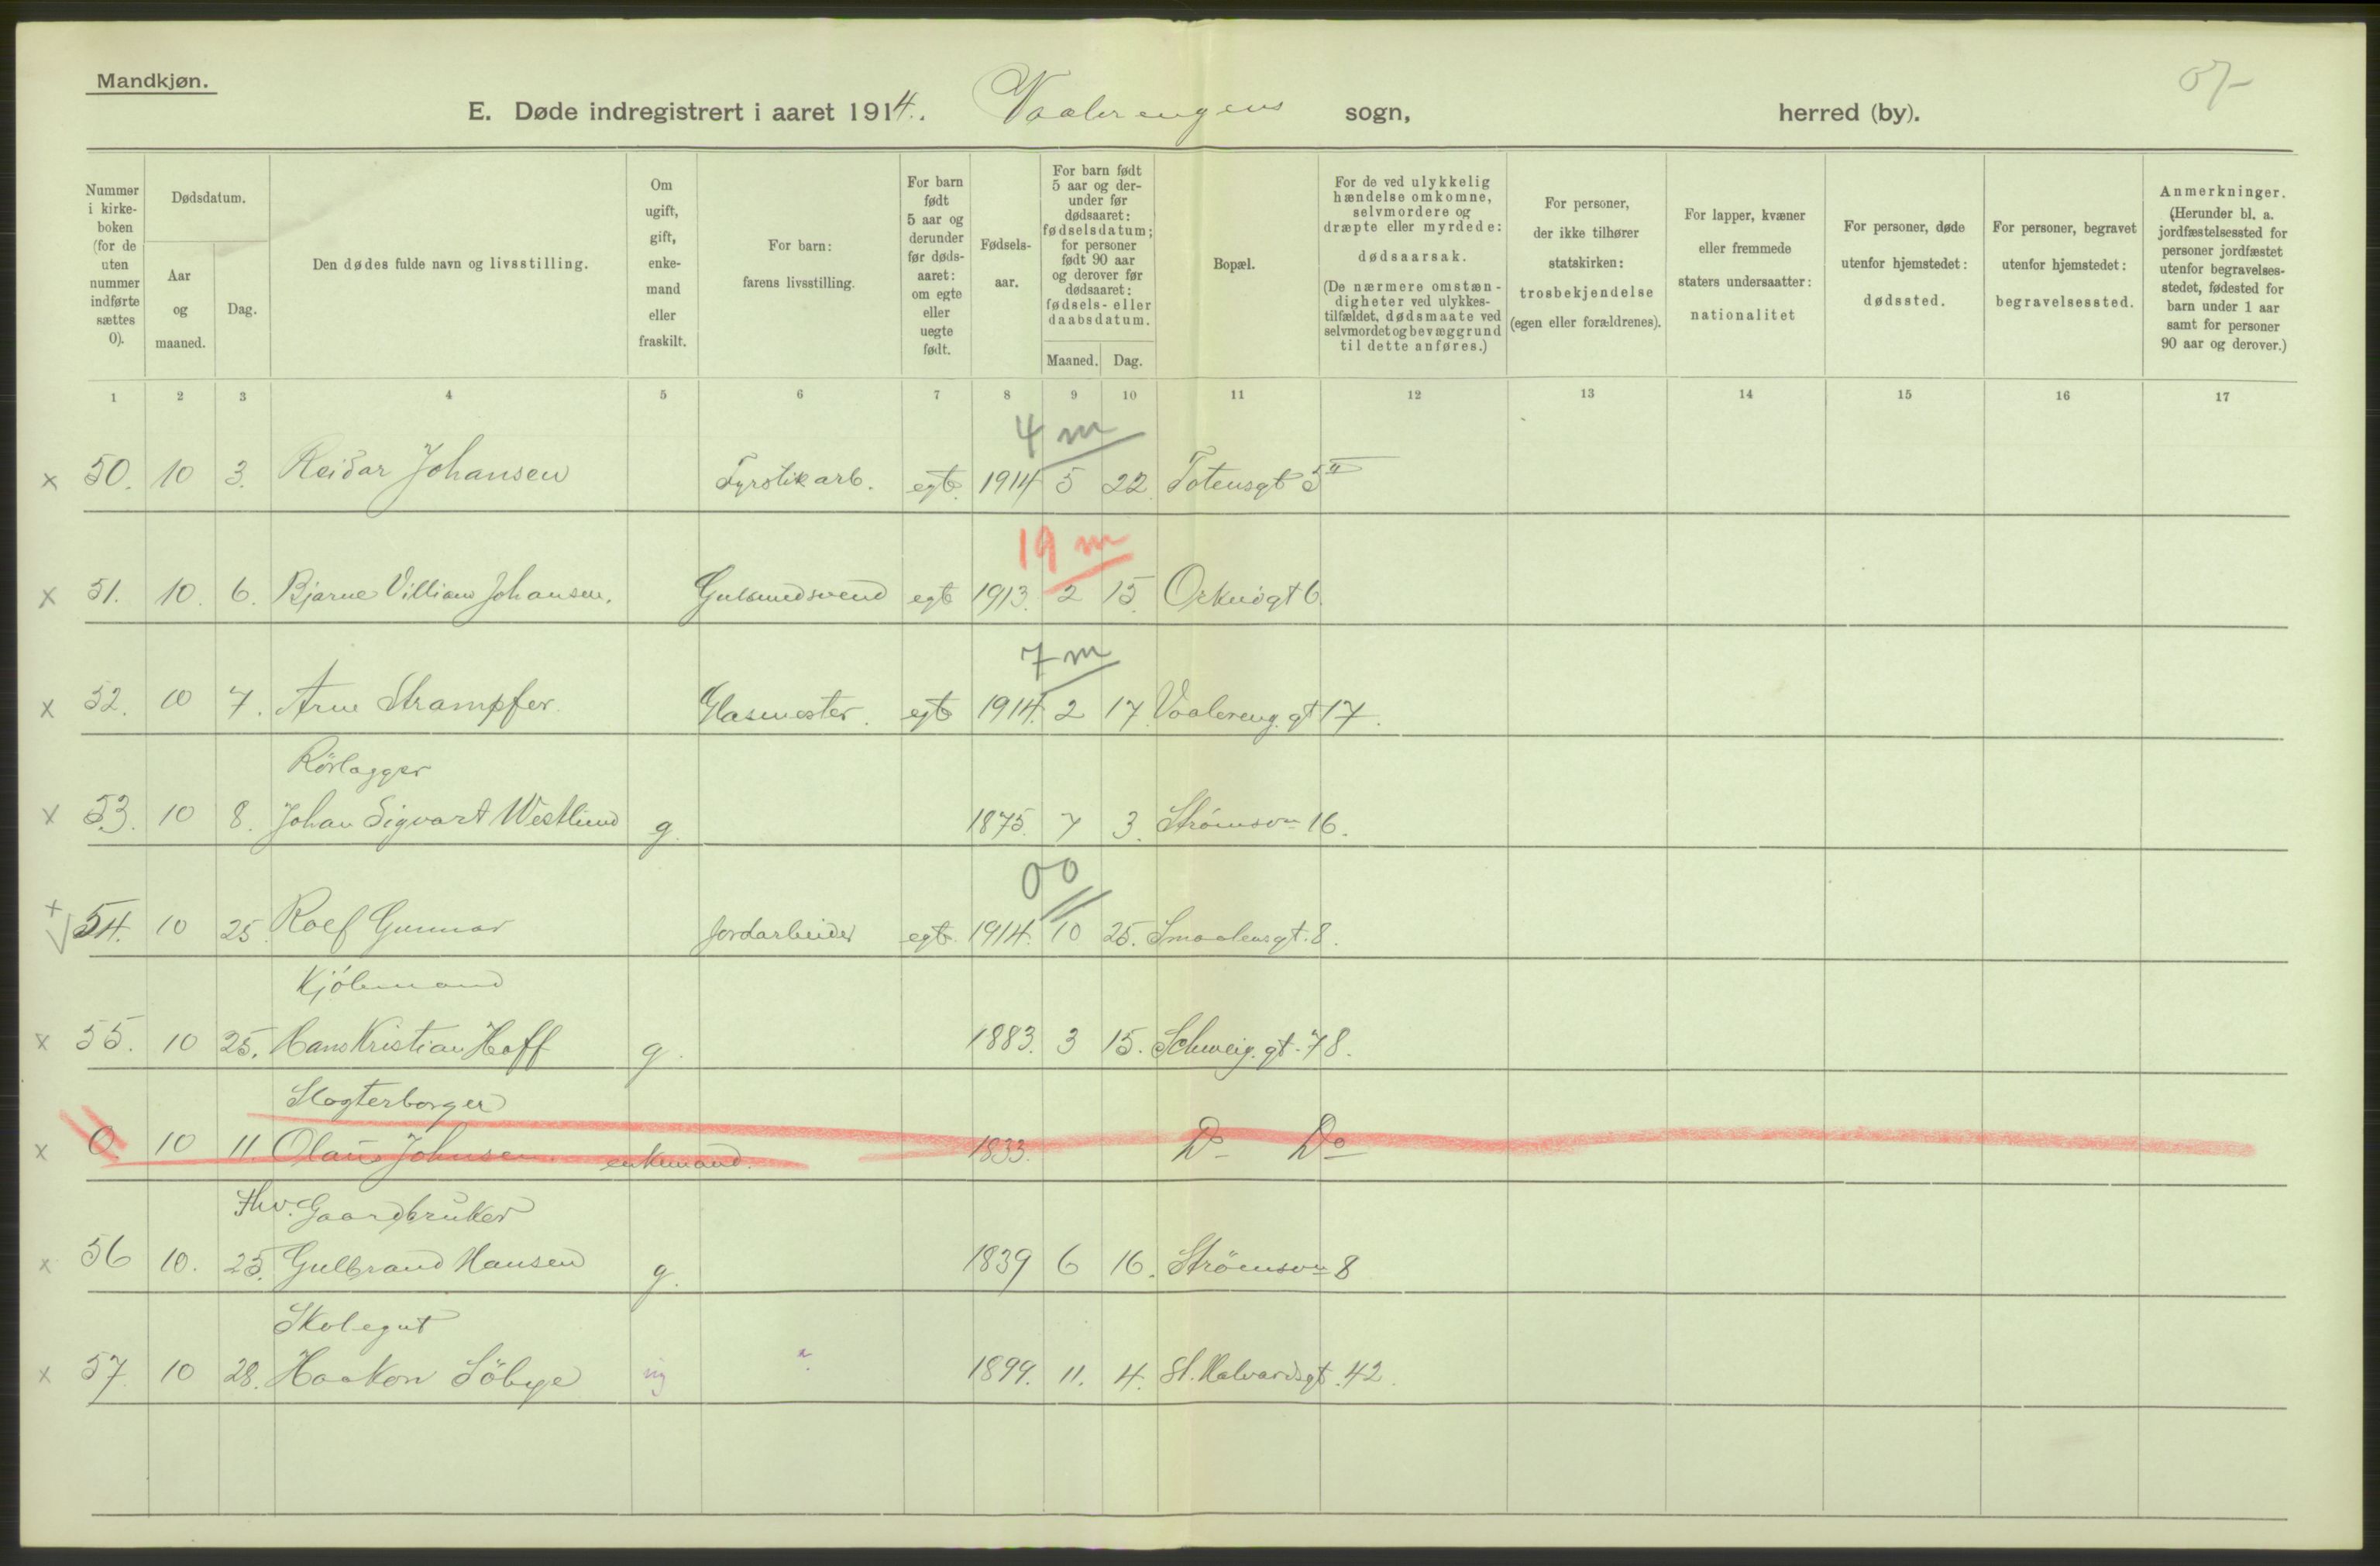 Mandkjøn.
57
E. Døde indregistrert i aaret 1914. Vaalerengens sogn, herred (by).
Nummer i kirkeboken (for de uten nummer indførte sættes 0).
Dødsdatum.
Aar og maaned.
Dag.
Den dødes fulde navn og livsstilling.
Om ugift, gift, enkemand eller fraskilt.
For barn: farens livsstilling.
For barn født 5 aar og derunder før dødsaaret: om egte eller uegte født.
Fødselsaar.
For barn født 5 aar og derunder før dødsaaret: fødselsdatum; for personer født 90 aar og derover før dødsaaret: fødsels- eller daabsdatum.
Maaned. Dag.
Bopæl.
For de ved ulykkelig hændelse omkomne, selvmordere og dræpte eller myrdede: dødsaarsak. (De nærmere omstændigheter ved ulykkestilfældet, dødsmaate ved selvmordet og bevæggrund til dette anføres.)
For personer, der ikke tilhører statskirken: trosbekjendelse (egen eller forældrenes).
For lapper, kvæner eller fremmede staters undersaatter: nationalitet
For personer, døde utenfor hjemstedet: dødssted.
For personer, begravet utenfor hjemstedet: begravelsessted.
Anmerkninger. (Herunder bl. a. jordfæstelsessted for personer jordfæstet utenfor begravelsesstedet, fødested for barn under 1 aar samt for personer 90 aar og derover.)
1 2 3 4 5 6 7 8 9 10 11 12 13 14 15 16 17
4 m
x 50. 10 3. Reidar Johansen Fyrstikarb. egt. 1914 5 22. Totensgt 5 II
19 m
x 51. 10. 6. Bjarne Villiam Johansen. Gulsmedsvend egt 1913. 2 15. Orknøgt 6.
7 m
x 52. 10 7. Arne Strampfer. Glasmester. egt 1914. 2 17. Vaalereng. gt 17.
Rörlægger
x 53. 10 8. Johan Sigvart Westlund g. 1875. 7 3. Strømsvn 16.
00
x 54. 10 25. Rolf Gunnar Jordarbeider egt. 1914. 10 25. Smaalensgt. 8.
Kjöbmand
x 55. 10 25. Hans Kristian Hoff g. 1883. 3 15. Schweig. gt. 78.
Slagterborger
x 0. 10 11. Olaus Johnsen. enkemand. 1833. Do Do
Fhv. Gaardbruker
x 56 10. 25. Gulbrand Hansen g. 1839 6 16. Strömsvn 8
Skolegut
x 57. 10 28. Haakon Söbye ug 1899. 11. 4. St. Halvardsgt. 42.